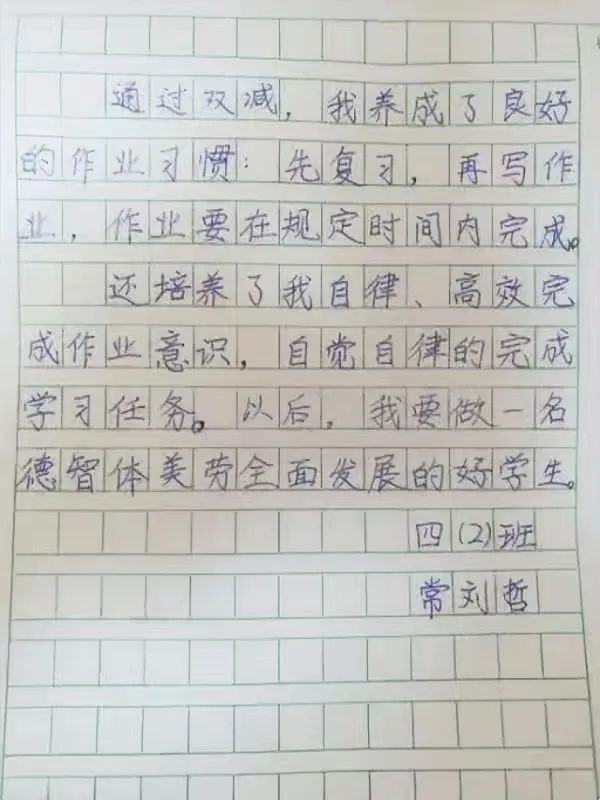 通过双减，我养成了良好
的作业习惯：先复习，再写作
业，作业要在规定时间内完成。
还培养了我自律、高效完
成作业意识，自觉自律的完成
学习任务。以后，我要做一名
德智体美劳全面发展的好学生。
四(2)班
常刘哲